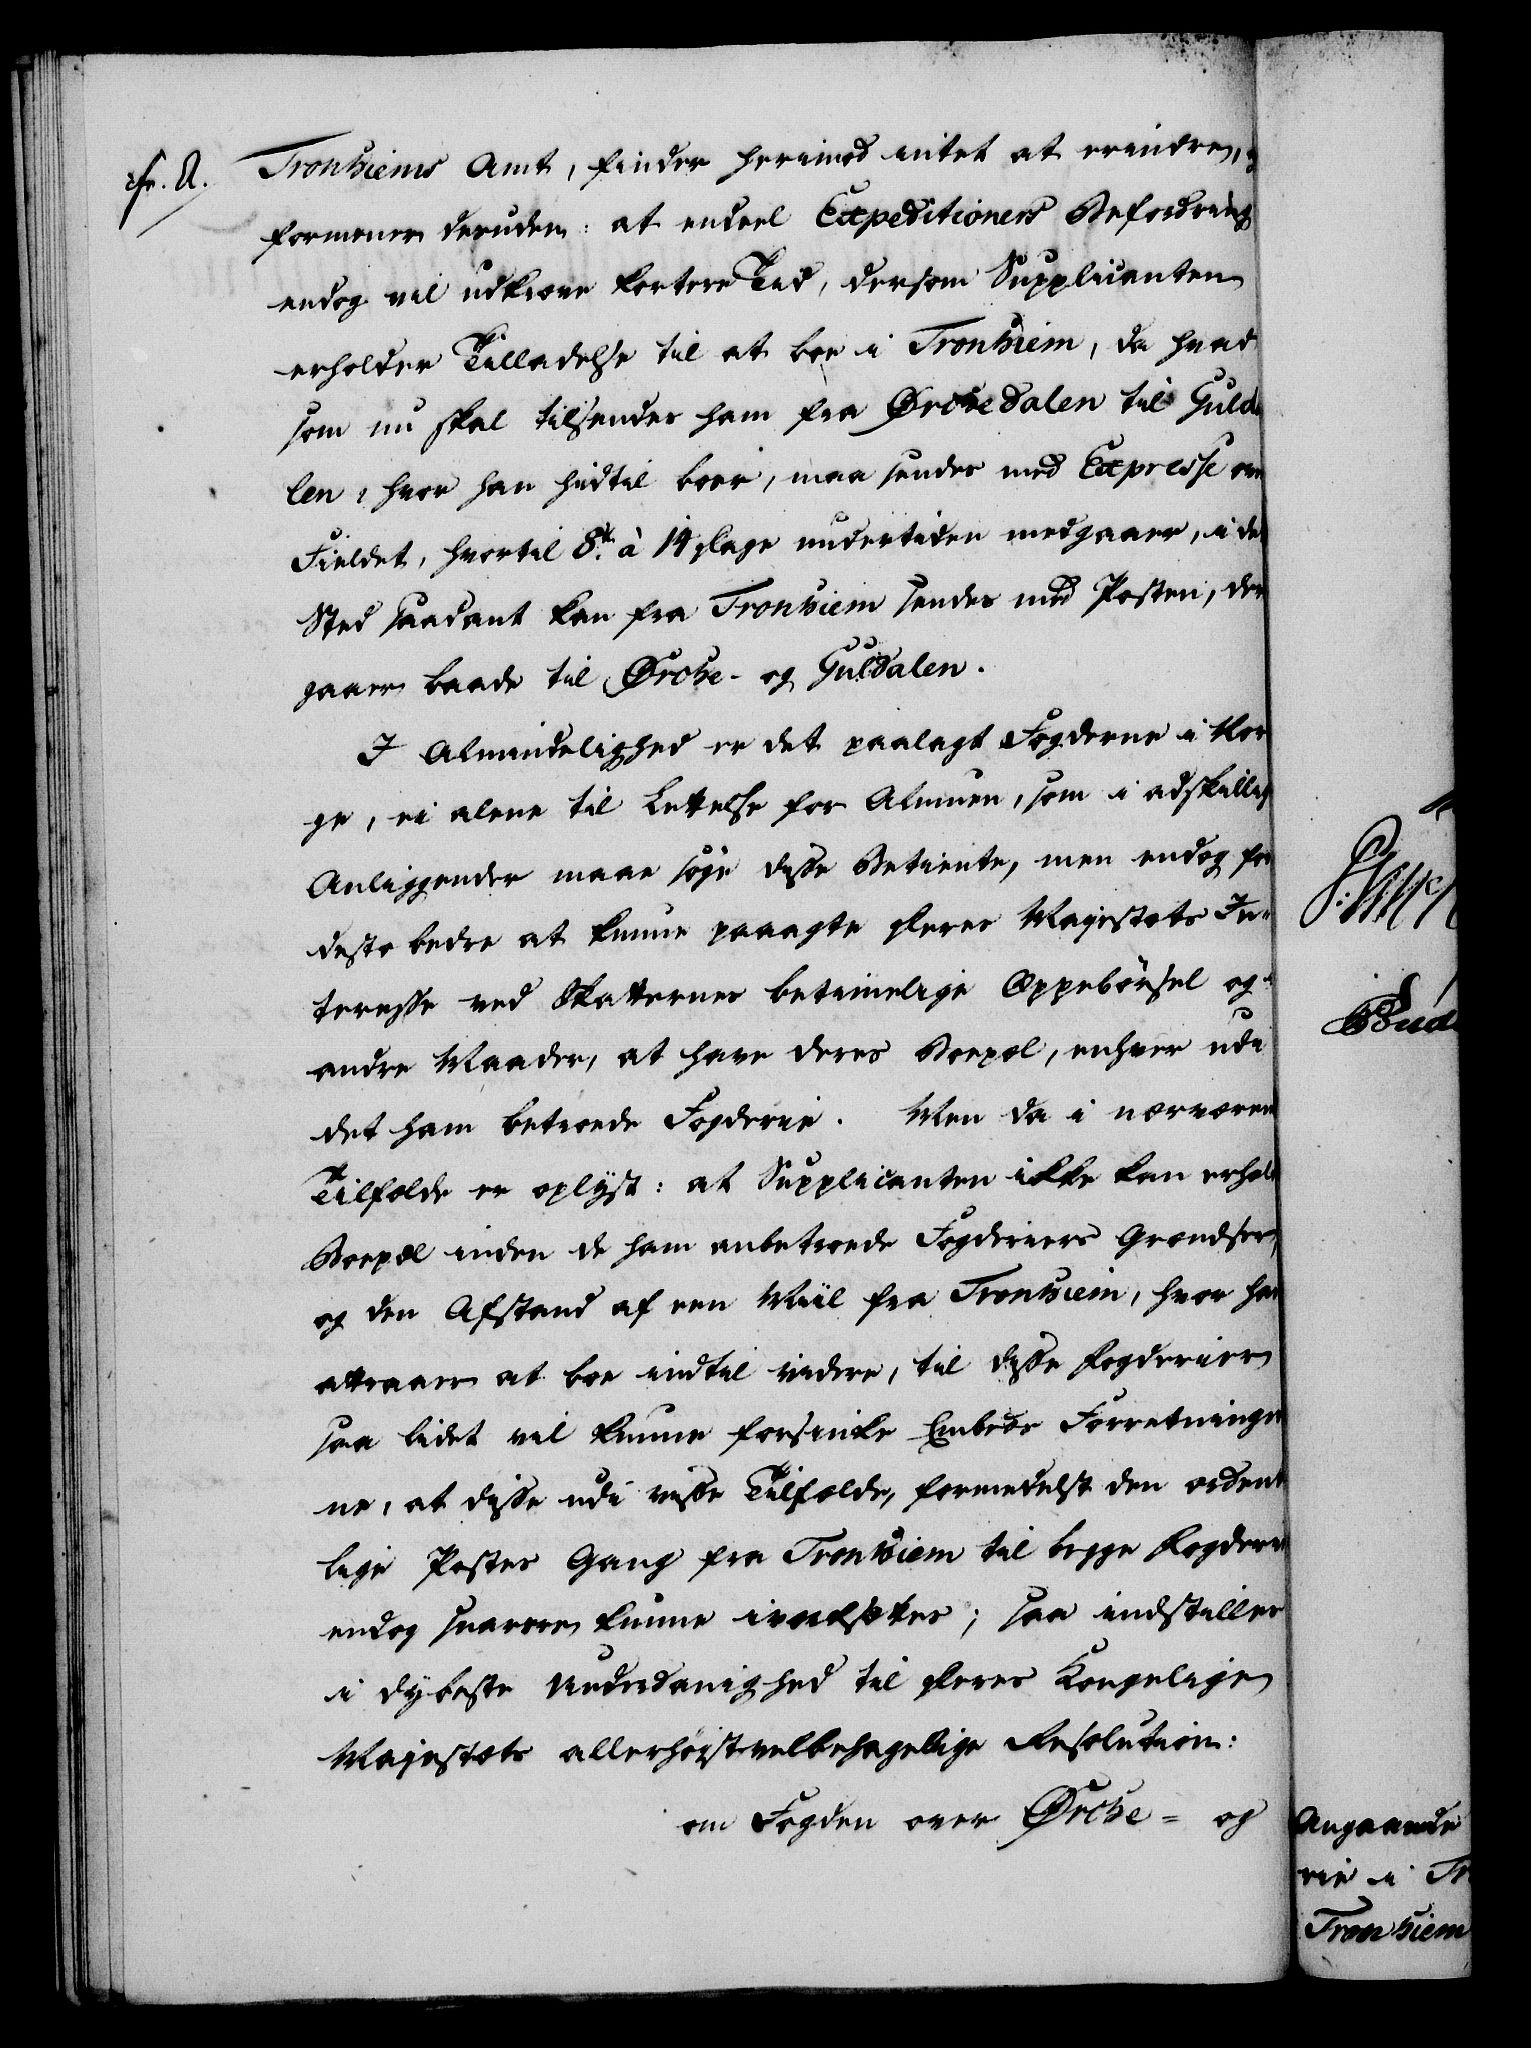 cfr. A.
Tronhiems Amt, finder herimod intet at erindre, og
formener desuden: at endeel Expeditioners Befordring
endog vil udkræve kortere Tid, dersom Supplicanten
erholder Tilladelse til at boe i Tronhiem, da hvad
som nu skal tilsendes ham fra Ørchedalen til Gulda
len, hvor han hidtil boer, maa sendes med Expresse over
Fieldet, hvortil 8te à 14 Dage undertiden medgaaer, i det
Sted saadant kan fra Tronhiem sendes med Posten, der
gaaer baade til Ørche- og Guldalen.
I Almindelighed er det paalagt Fogderne i Nor
ge, ei alene til Lettelse for Almuen, som i adskillige
Anliggender maae søge disse Betiente, men endog for
desto bedre at kunne paaagte Deres Majestæts In-
teresse ved Skatternes betimelige Oppebørsel og i
andre Maader, at have deres Boepæl, enhver udi
det ham betroede Fogderie. Men da i nærværende
Tilfælde er oplyst: at Supplicanten ikke kan erholde
Boepæl inden de ham anbetroede Fogderiers Grændser,
og den Afstand af een Miil fra Tronhiem, hvor han
attraaer at boe indtil videre, til disse Fogderier
saa lidet vil kunne forsinke Embeds Forretninger
ne, at disse udi visse Tilfælde, formedelst den ordent
lige Postes Gang fra Tronhiem til begge Fogderier
endog snarere kunne iværksættes; saa indstilles
i dybeste Underdanighed til Deres Kongelige
Majestæts allerhøistvelbehagelige Resolution:
om Fogden over Ørche- og
Angaaende
rie i Tr
Tronhiem